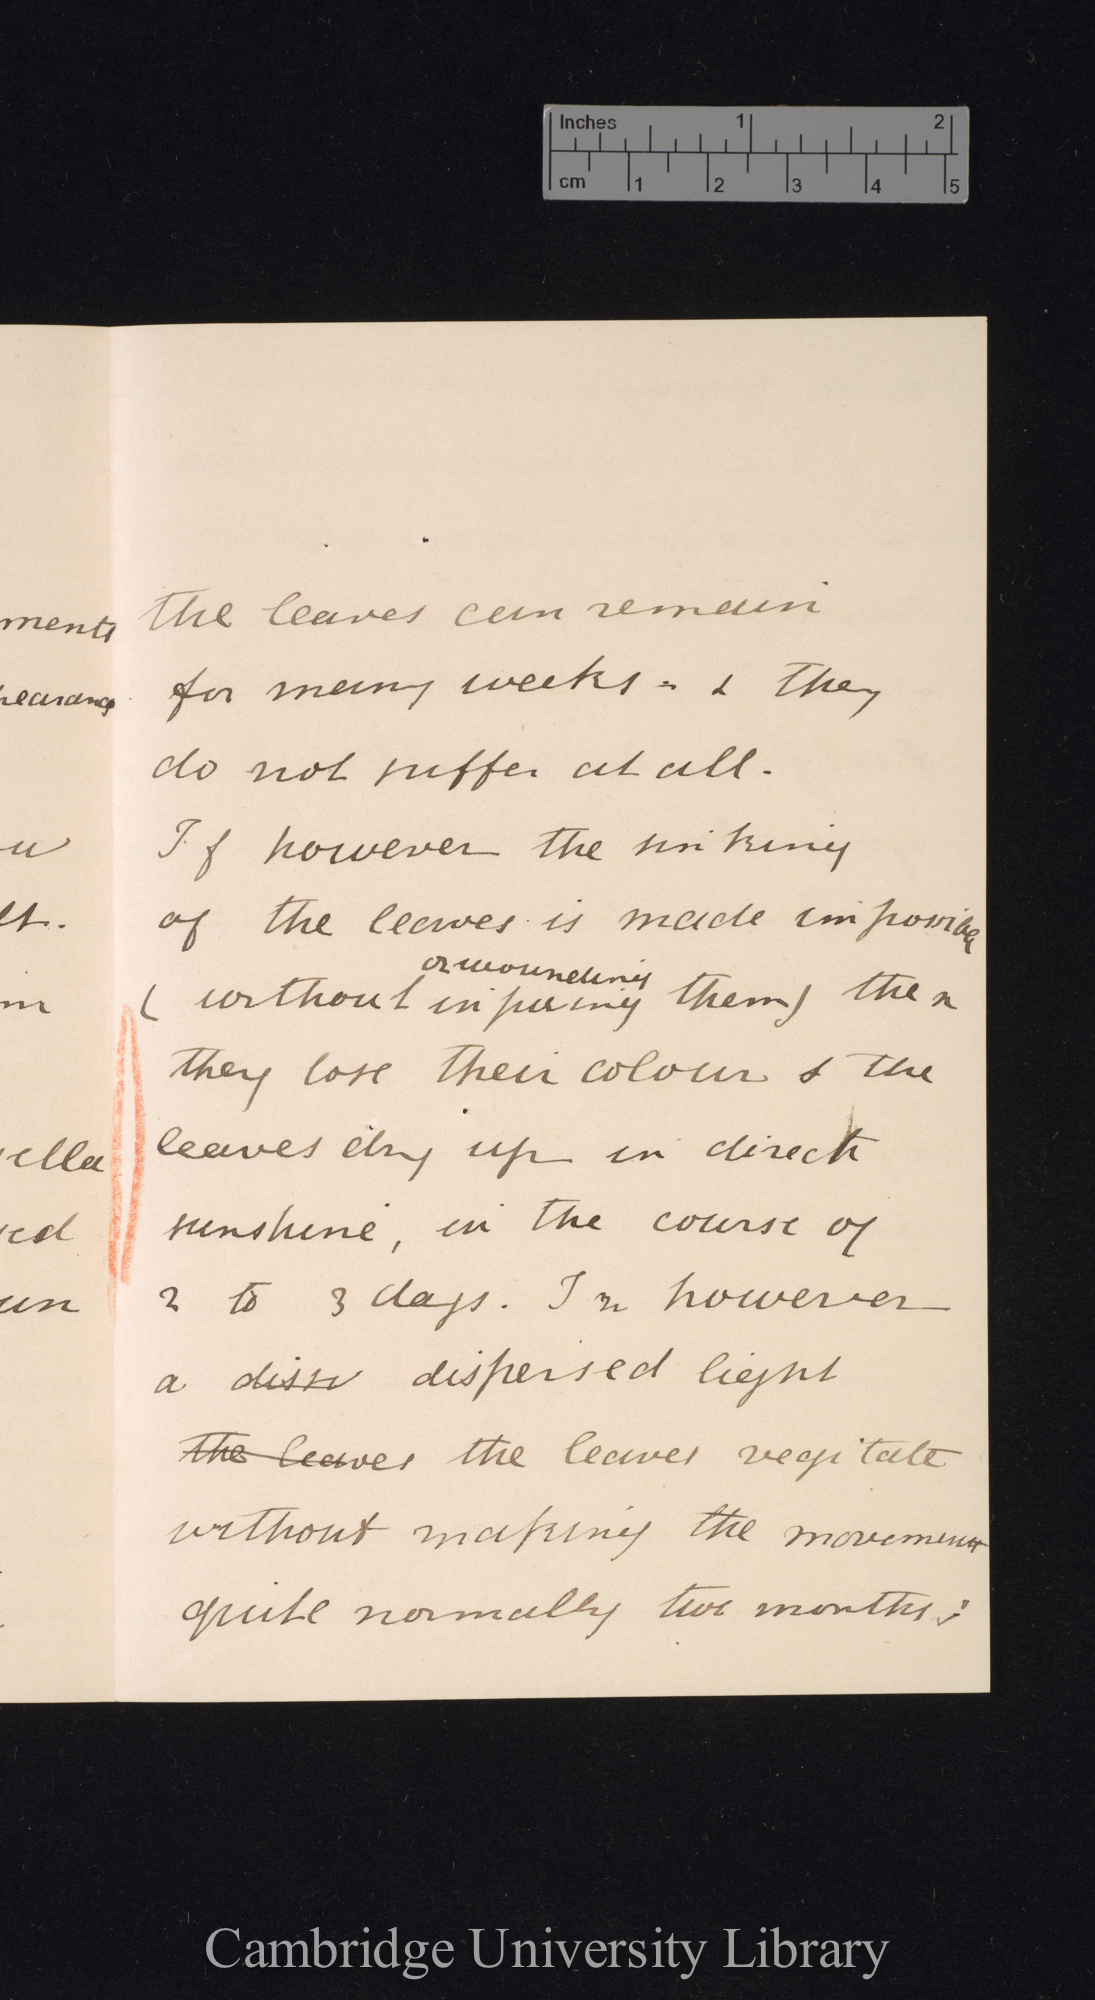 Inches 1 2
cm 1 2 3 4 5
ments
pearance
ou
lt.
m
ella
ed
un
the leaves can remain
for many weeks = & they
do not suffer at all.
If however the sinking
of the leaves is made impossible
or wounding
( without injuring them) then
they lose their colour & the
leaves dry up in direct
sunshine, in the course of
2 to 3 days. In however
a diss dispersed light
the leaves the leaves vegitate
without making the movement
quite normally two months;
Cambridge University Library